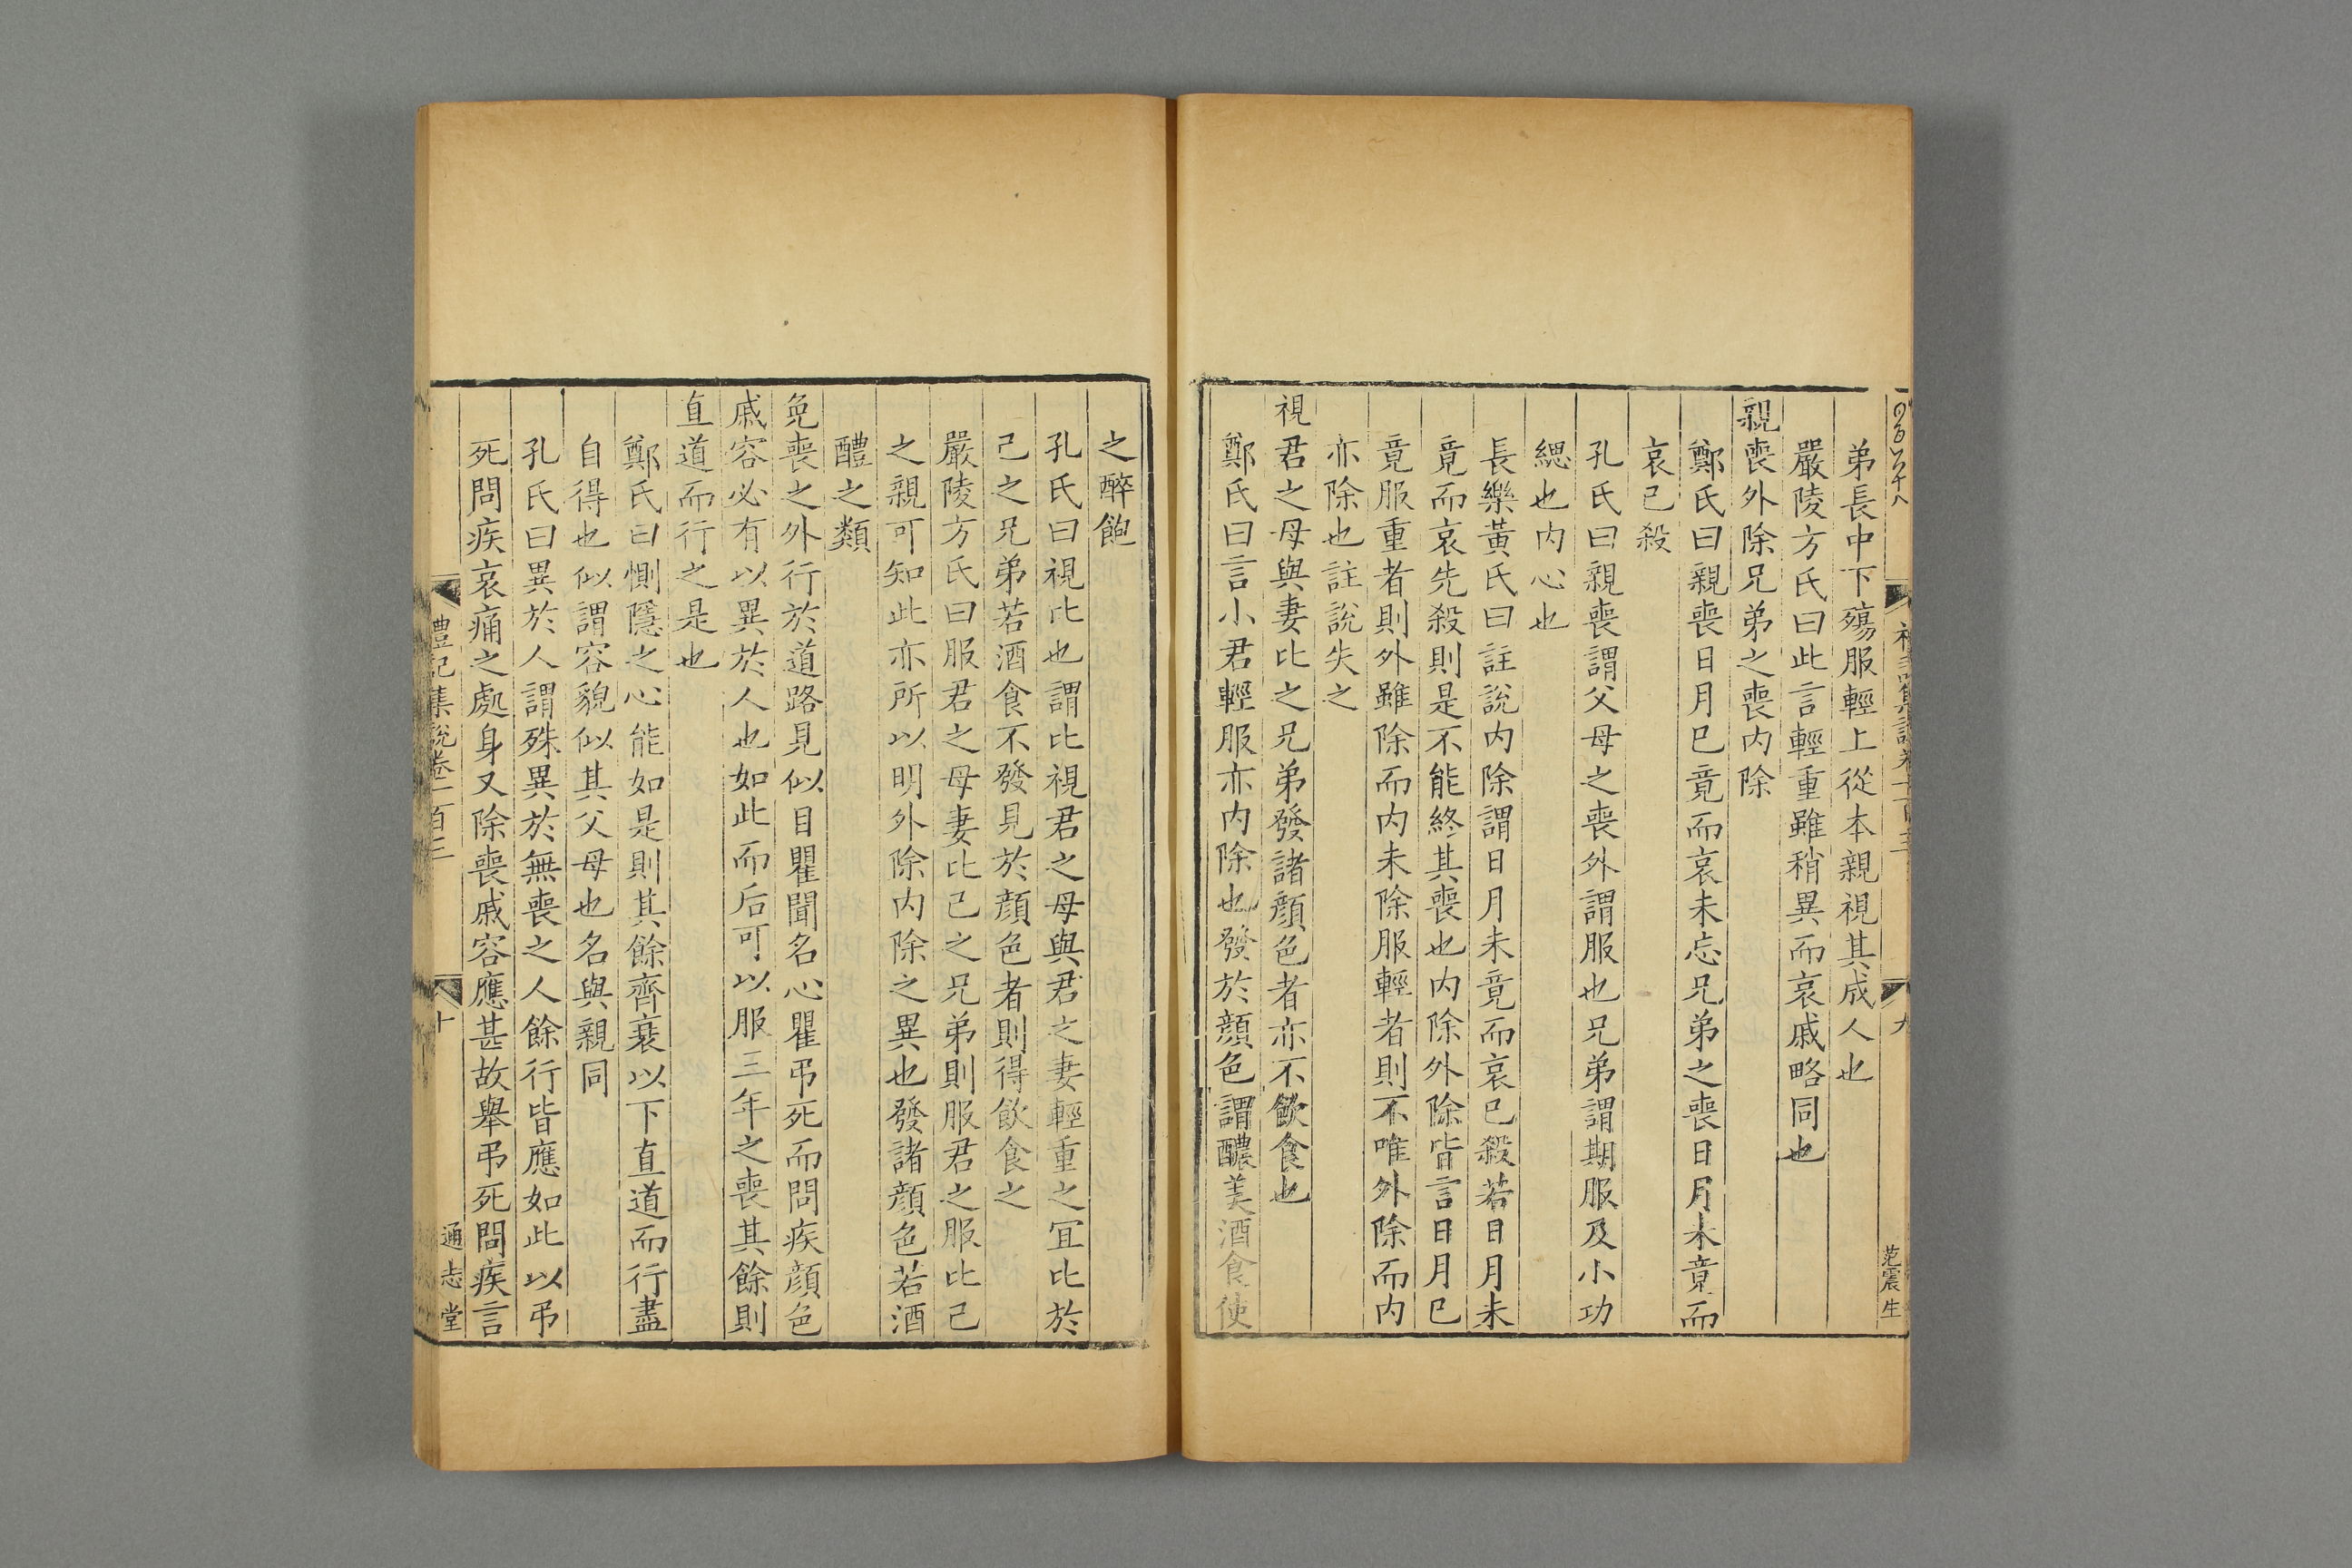 弟長中下殤服輕上從本親視其成人也
嚴陵方氏曰此言輕重雖稍異而哀戚略同也
親喪外除兄弟之喪内除
鄭氏曰親喪日月已竟而哀未忘兄弟之喪日月未竟而
哀已殺
孔氏曰親喪謂父母之喪外謂服也兄弟謂期服及小功
緦也内心也
長樂黃氏曰註說内除謂日月未竟而哀已殺若日月未
竟而哀先殺則是不能終其喪也内除外除皆言日月已
竟服重者則外雖除而内未除服輕者則不唯外除而内
亦除也註說失之
視君之母與妻比之兄弟發諸顔色者亦不飲食也
鄭氏曰言小君輕服亦内除也發於顔色謂醲美酒食使
九
范震生
之醉飽
孔氏曰視比也謂比視君之母與君之妻輕重之宜比於
己之兄弟若酒食不發見於顔色者則得飲食之
嚴陵方氏曰服君之母妻比己之兄弟則服君之服比己
之親可知此亦所以明外除内除之異也發諸顔色若酒
醴之類
免喪之外行於道路見似目瞿聞名心瞿弔死而問疾顔色
戚容必有以異於人也如此而后可以服三年之喪其餘則
直道而行之是也
鄭氏曰惻隱之心能如是則其餘齊衰以下直道而行盡
自得也似謂容貌似其父母也名與親同
孔氏曰異於人謂殊異於無喪之人餘行皆應如此以弔
死問疾哀痛之處身又除喪戚容應甚故舉弔死問疾言
禮記集說卷一百三
十
通志堂